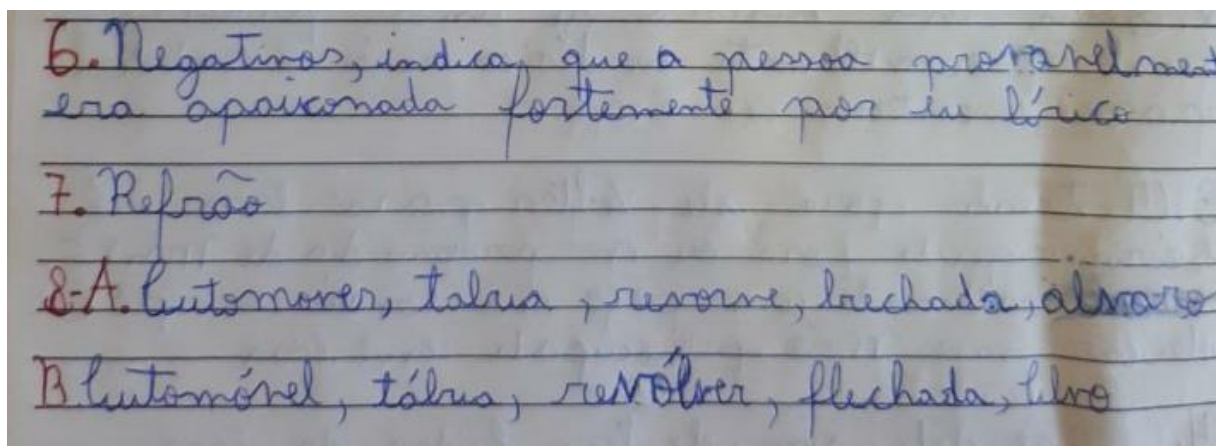 6. Negativos, indica, que a pessoa provavelment
era apaixonada fortemente por eu lírico
7. Refrão
8-A. Automover, tabua, revorve, brechada, alvaro
B Automóvel, tábua, revólver, flechada, Alvo